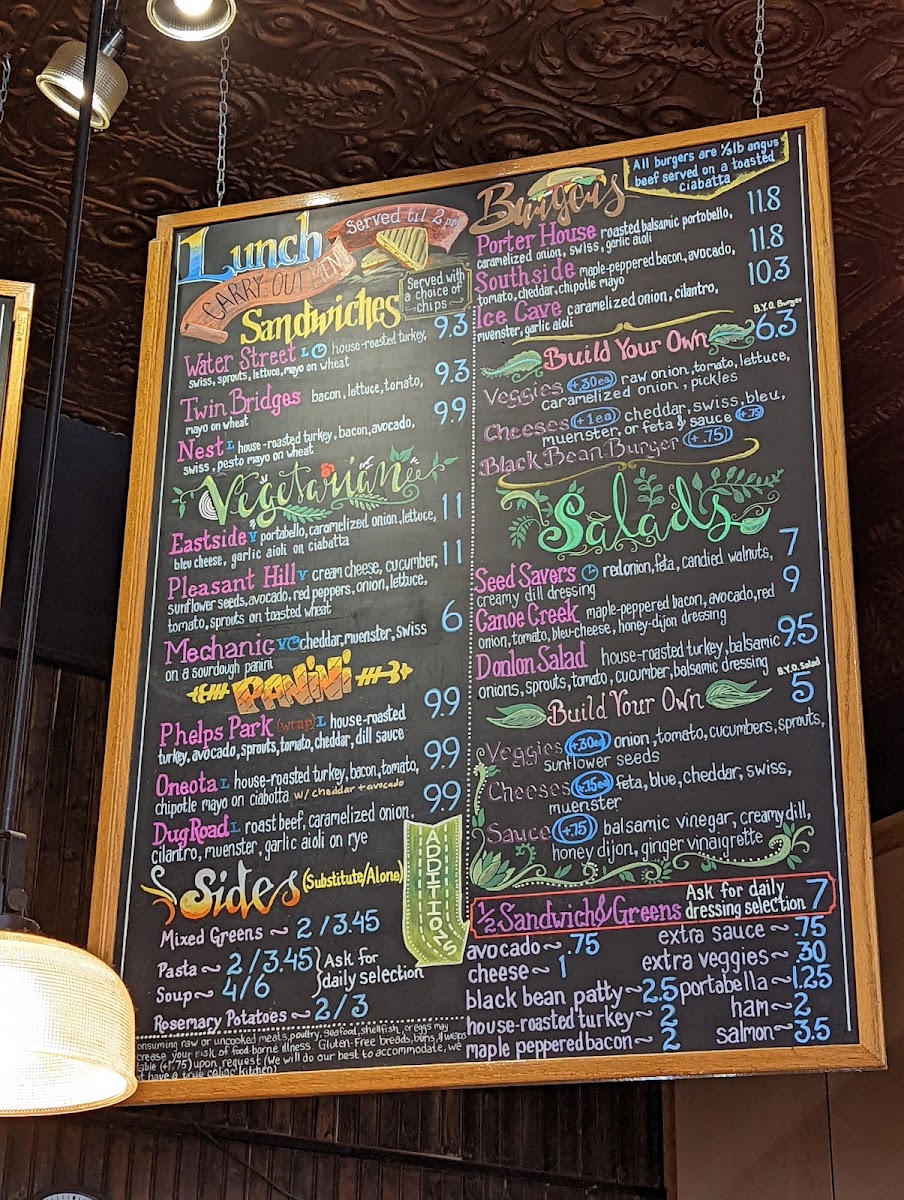 Lunch
Served til 2 pm
CARRY-OUT
Sandwiches
Served with
a choice of
chips
Water Street L house-roasted turkey, 9.3
swiss, sprouts, lettuce, mayo on wheat
Twin Bridges bacon, lettuce, tomato, 9.3
mayo on wheat
Nest L house-roasted turkey, bacon, avocado, 9.9
swiss, pesto mayo on wheat
Vegetarian
Eastside V portabello, caramelized onion, lettuce, 11
bleu cheese, garlic aioli on ciabatta
Pleasant Hill V cream cheese, cucumber, 11
sunflower seeds, avocado, red peppers, onion, lettuce,
tomato, sprouts on toasted wheat
Mechanic V cheddar, muenster, swiss 6
on a sourdough panini
PANiNi
Phelps Park (wrap) L house-roasted 9.9
turkey, avocado, sprouts, tomato, cheddar, dill sauce
Oneota L house-roasted turkey, bacon, tomato, 9.9
chipotle mayo on ciabotta w/ cheddar + avocado
Dug Road L roast beef, caramelized onion, 9.9
cilantro, muenster, garlic aioli on rye
Sides (Substitute/Alone)
Mixed Greens ~ 2 / 3.45
Pasta ~ 2 / 3.45 } Ask for
Soup ~ 4/6 daily selection
Rosemary Potatoes ~ 2/3
onsuming raw or uncooked meats, poultry, seafood, shellfish, or eggs may
crease your risk of food-borne illness. Gluten-Free breads, buns, & wraps
lable (+1.75) upon request (We will do our best to accommodate, we
t have a true celiac kitchen)
Burgers
All burgers are 1/3lb angus
beef served on a toasted
ciabatta
Porter House roasted balsamic portobello, 11.8
caramelized onion, swiss, garlic aioli
Southside maple-peppered bacon, avocado, 11.8
tomato, cheddar, chipotle mayo
Ice Cave caramelized onion, cilantro, 10.3
muenster, garlic aioli
B.Y.O. Burger
Build Your Own 6.3
Veggies (+.30ea) raw onion, tomato, lettuce,
caramelized onion, pickles
Cheeses (+1ea) cheddar, swiss, bleu,
muenster, or feta & sauce (+.75)
Black Bean Burger (+.75)
Salads
Seed Savers red onion, feta, candied walnuts, 7
creamy dill dressing
Canoe Creek maple-peppered bacon, avocado, red 9
onion, tomato, bleu-cheese, honey-dijon dressing
Donlon Salad house-roasted turkey, balsamic 9.5
onions, sprouts, tomato, cucumber, balsamic dressing
B.Y.O. Salad
Build Your Own 5
Veggies (+.30ea) onion, tomato, cucumbers, sprouts,
sunflower seeds
Cheeses (+.75ea) feta, blue, cheddar, swiss,
muenster
Sauce (+.75) balsamic vinegar, creamy dill,
honey dijon, ginger vinaigrette
1/2 Sandwich & Greens Ask for daily 7
dressing selection
ADDITIONS
avocado ~ .75
cheese ~ 1
black bean patty ~ 2.5
house-roasted turkey ~ 2
maple peppered bacon ~ 2
extra sauce ~ .75
extra veggies ~ .30
portabella ~ 1.25
ham ~ 2
salmon ~ 3.5